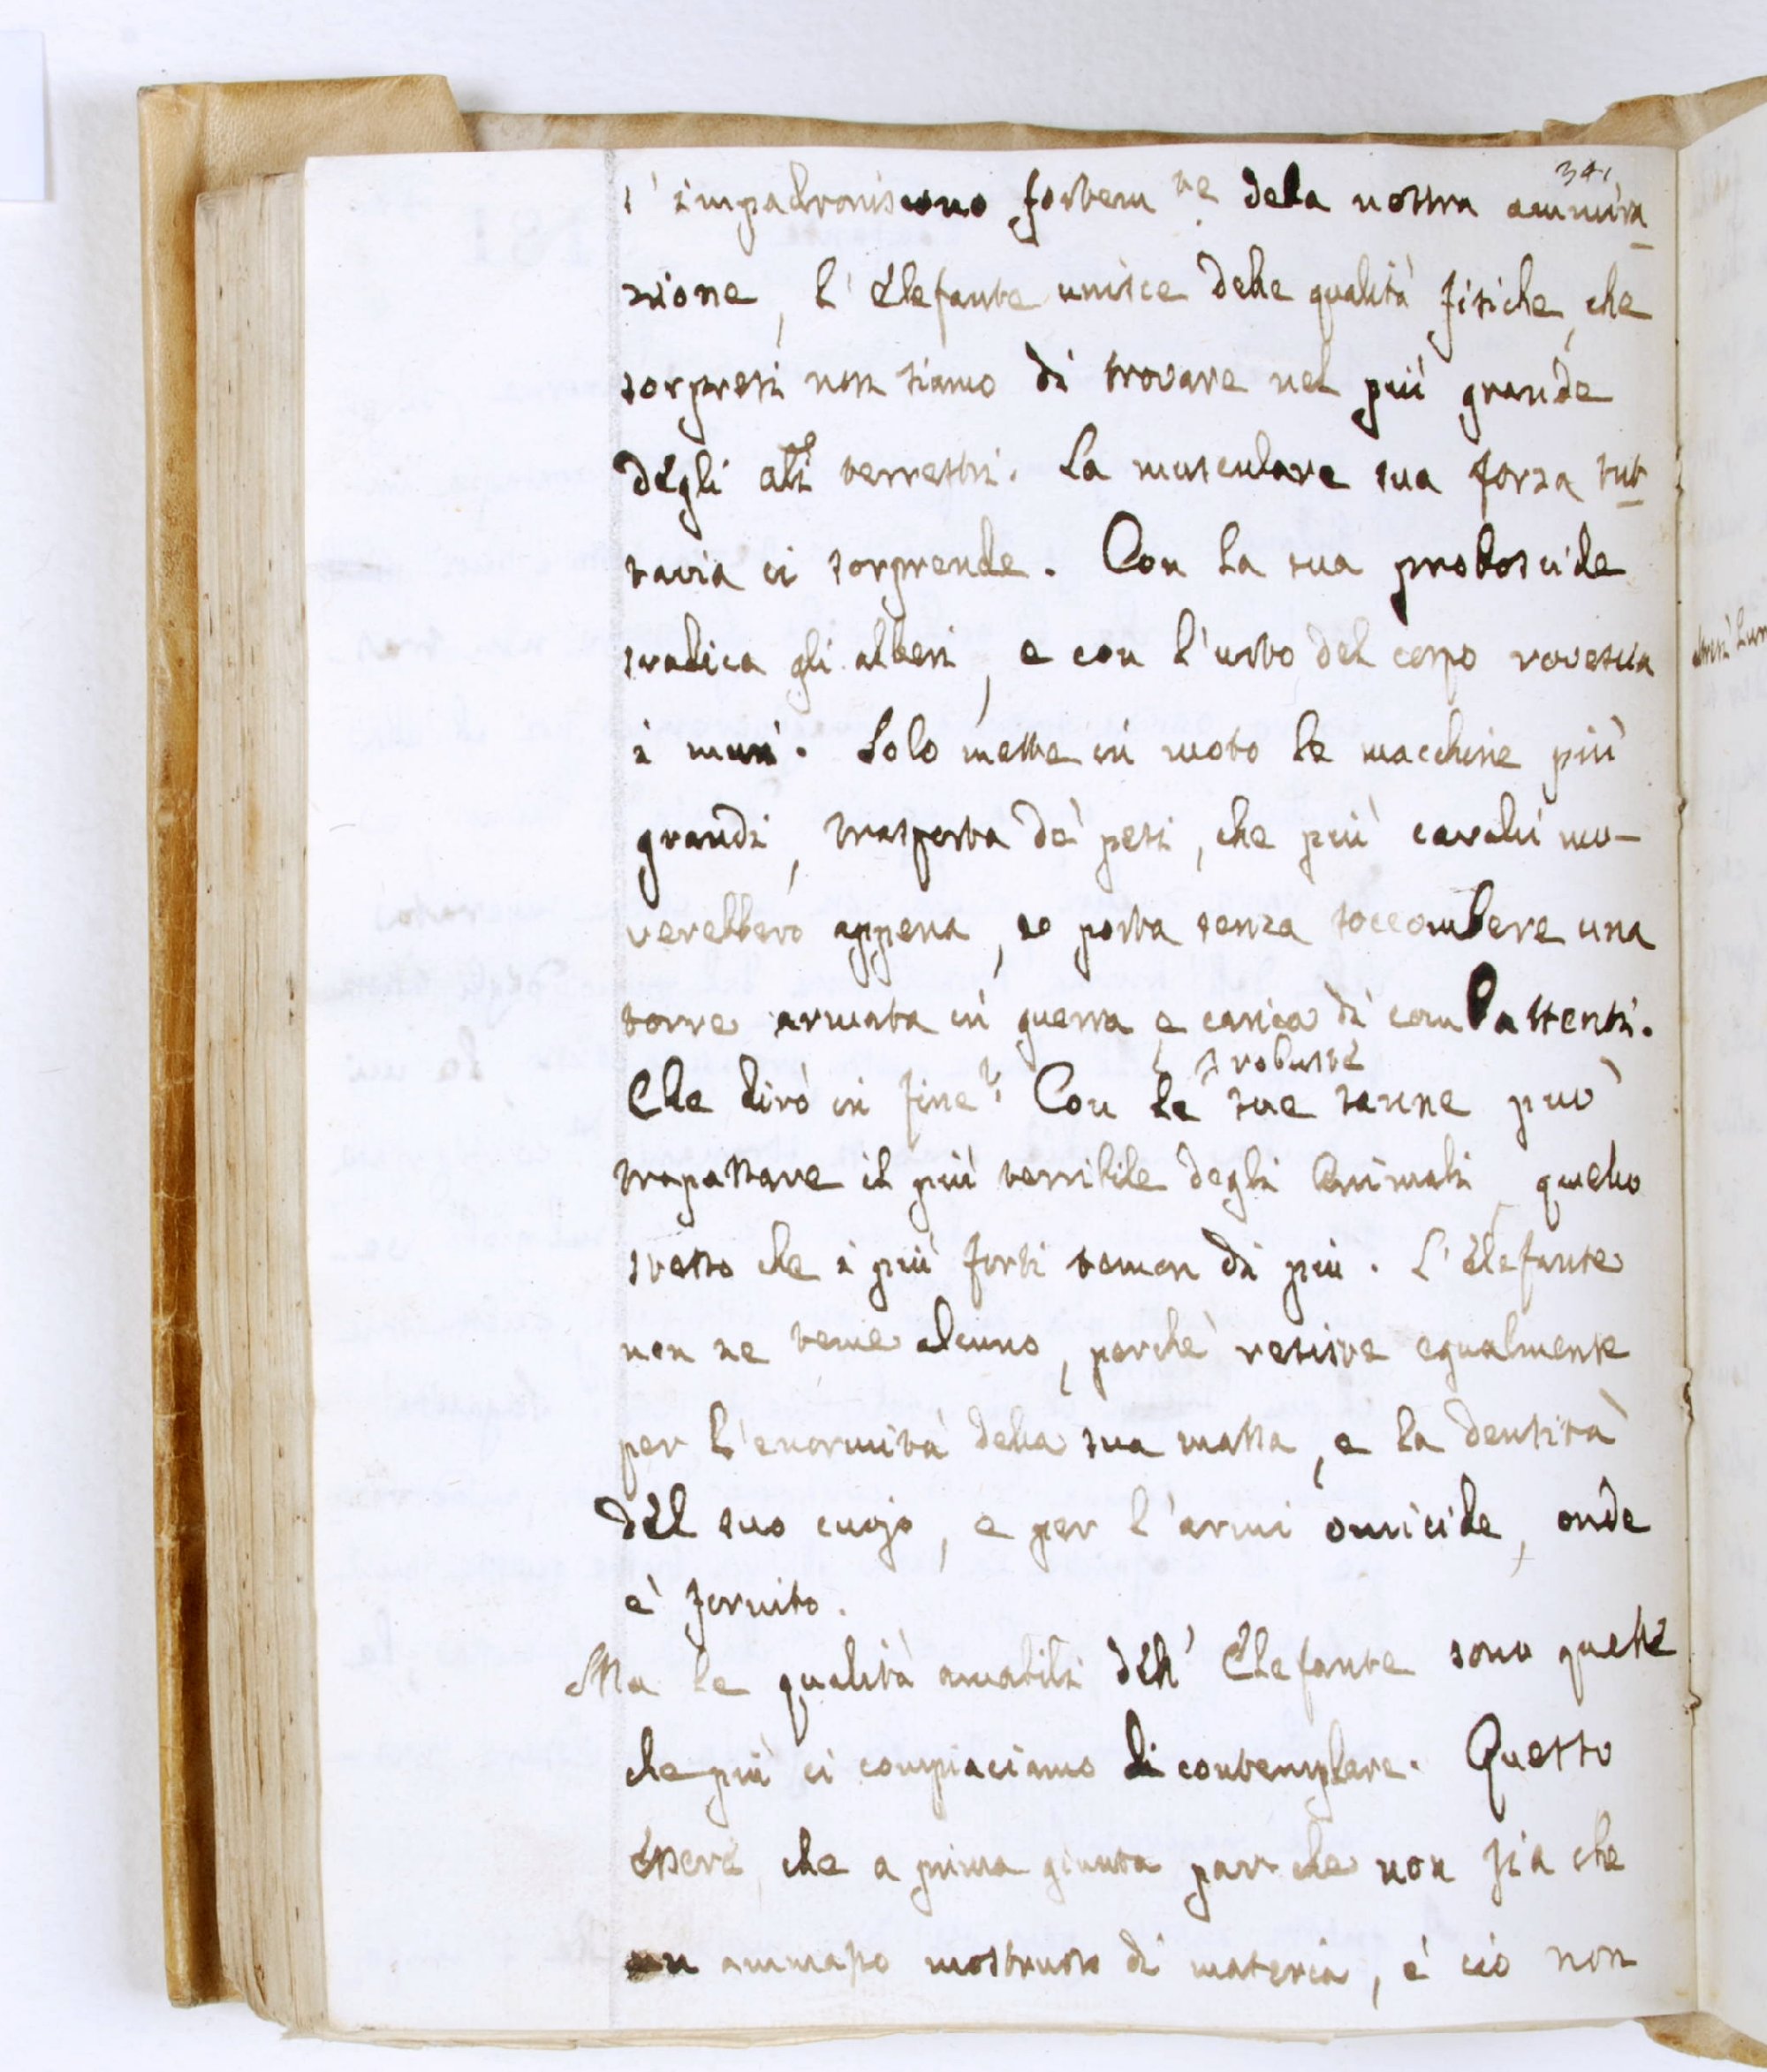 341
s'impadroniscono fortem.te della nostra ammira
zione, l'Elefante unisce delle qualità fisiche, che
sorpresi non siamo di trovare nel più grande
degli atri terrestri. La musculare sua forza tut
tavia ci sorprende. Con la sua proboscide
sradica gli alberi, e con l'urto del corpo rovescia
i muri. Solo mette in moto le macchine più
grandi, trasporta de' pesi, che più cavalli mo-
verebbero appena, e porta senza soccombere una
torre armata in guerra e carica di combattenti.
robuste
Che dirò in fine? Con le sue sanne può
trapassare il più terribile degli Animali quello
stesso che i più forti temon di più. L'Elefante
non ne teme alcuno, perchè resiste egualmente
per l'enormità della sua massa, e la densità
del suo cuojo, e per l'armi omicide, onde
è fornito.
Ma le qualità amabili dell'Elefante sono quelle
che più ci compiaciamo di contemplare. Questo
Essere, che a prima giunta par che non sia che
un ammasso mostruoso di materia, e ciò non